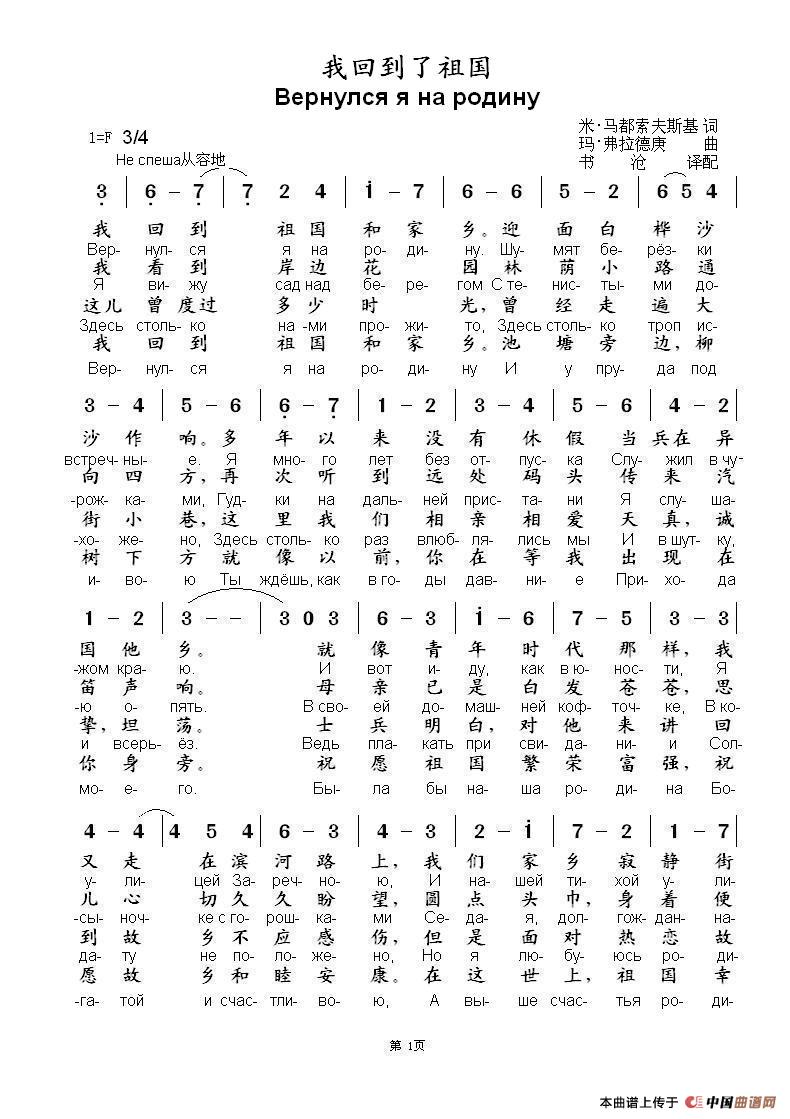 我回到了祖国
Вернулся я на родину
1=F 3/4
米·马都索夫斯基 词
玛·弗拉德庚 曲
书 沧 译配
Не спеша从容地
3 | 6 – 7 | 7 2 4 | i – 7 | 6 – 6 | 5 – 2 | 6 5 4 |
我 回 到 祖 国 和 家 乡。迎 面 白 桦 沙
Вер- нул- ся я на ро- ди- ну. Шу- мят бе- рёз- ки
我 看 到 岸 边 花 园 林 荫 小 路 通
Я ви- жу сад над бе- ре- гом С те- нис- ты- ми до-
这儿 曾 度过 多 少 时 光, 曾 经 走 遍 大
Здесь столь- ко на -ми про- жи- то, Здесь столь- ко троп ис-
我 回 到 祖 国 和 家 乡。池 塘 旁 边, 柳
Вер- нул- ся я на ро- ди- ну И у пру- да под
3 – 4 | 5 – 6 | 6 – 7 | 1 – 2 | 3 – 4 | 5 – 6 | 4 – 2 |
沙 作 响。多 年 以 来 没 有 休 假 当 兵在 异
встреч- ны- е. Я мно- го лет без от- пус- ка Слу- жил в чу-
向 四 方, 再 次 听 到 远 处 码 头 传 来 汽
-рож- ка- ми, Гуд- ки на даль- ней прис- та- ни Я слу- ша-
街 小 巷, 这 里 我 们 相 亲 相 爱 天 真, 诚
-хо- же- но, Здесь столь- ко раз влюб- ля- лись мы И в шут- ку,
树 下 方 就 像 以 前, 你 在 等 我 出 现 在
и- во- ю Ты ждёшь, как в го- ды дав- ни- е При- хо- да
1 – 2 | 3 – – | 3 0 3 | 6 – 3 | i – 6 | 7 – 5 | 3 – 3 |
国 他 乡。 就 像 青 年 时 代 那 样, 我
-жом кра- ю. И вот и- ду, как в ю- нос- ти, Я
笛 声 响。 母 亲 已 是 白 发 苍 苍, 思
-ю о- пять. В сво- ей до- маш- ней коф- точ- ке, В ко-
挚, 坦 荡。 士 兵 明 白, 对 他 来 讲 回
и всерь- ёз. Ведь пла- кать при сви- да- ни- и Сол-
你 身 旁。 祝 愿 祖 国 繁 荣 富 强, 祝
мо- е- го. Бы- ла бы на- ша ро- ди- на Бо-
4 – 4 | 4 5 4 | 6 – 3 | 4 – 3 | 2 – i | 7 – 2 | 1 – 7 |
又 走 在 滨 河 路 上, 我 们 家 乡 寂 静 街
у- ли- цей За- реч- но- ю, И на- шей ти- хой у- ли-
儿 心 切 久 久 盼 望, 圆 点 头 巾, 身 着 便
-сы- ноч- ке с го- рош- ка- ми Се- да- я, дол- гож- дан- на-
到 故 乡 不 应 感 伤, 但 是 面 对 热 恋 故
да- ту не по- ло- же- но, Но я лю- бу- юсь ро- ди-
愿 故 乡 和 睦 安 康。在 这 世 上, 祖 国 幸
-га- той и счас- тли- во- ю, А вы- ше счас- тья ро- ди-
第 1页
本曲谱上传于 中国曲谱网